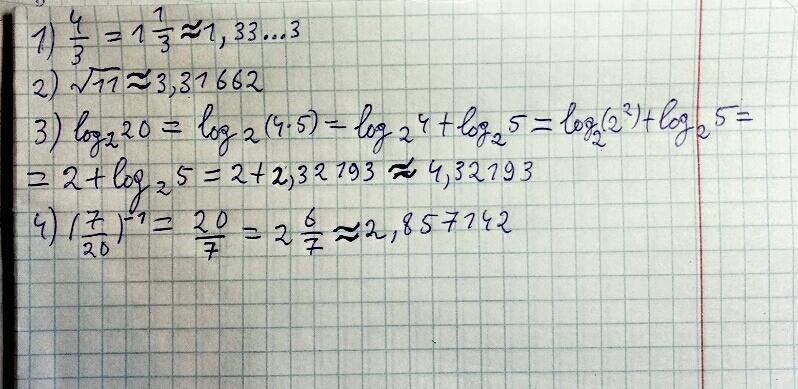 1) 4/3 = 1 1/3 ≈ 1,33...3
2) √11 ≈ 3,31662
3) log₂20 = log₂(4·5) = log₂4 + log₂5 = log₂(2²) + log₂5 =
= 2 + log₂5 = 2 + 2,32193 ≈ 4,32193
4) (7/20)⁻¹ = 20/7 = 2 6/7 ≈ 2,857142